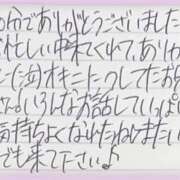 分でありがとうございました
忙しい中来てくれて、ありが
オキニトークしてたお
いろんなお話していっぱい
気持ちよくなれたねまたい
でも来て下さい♪